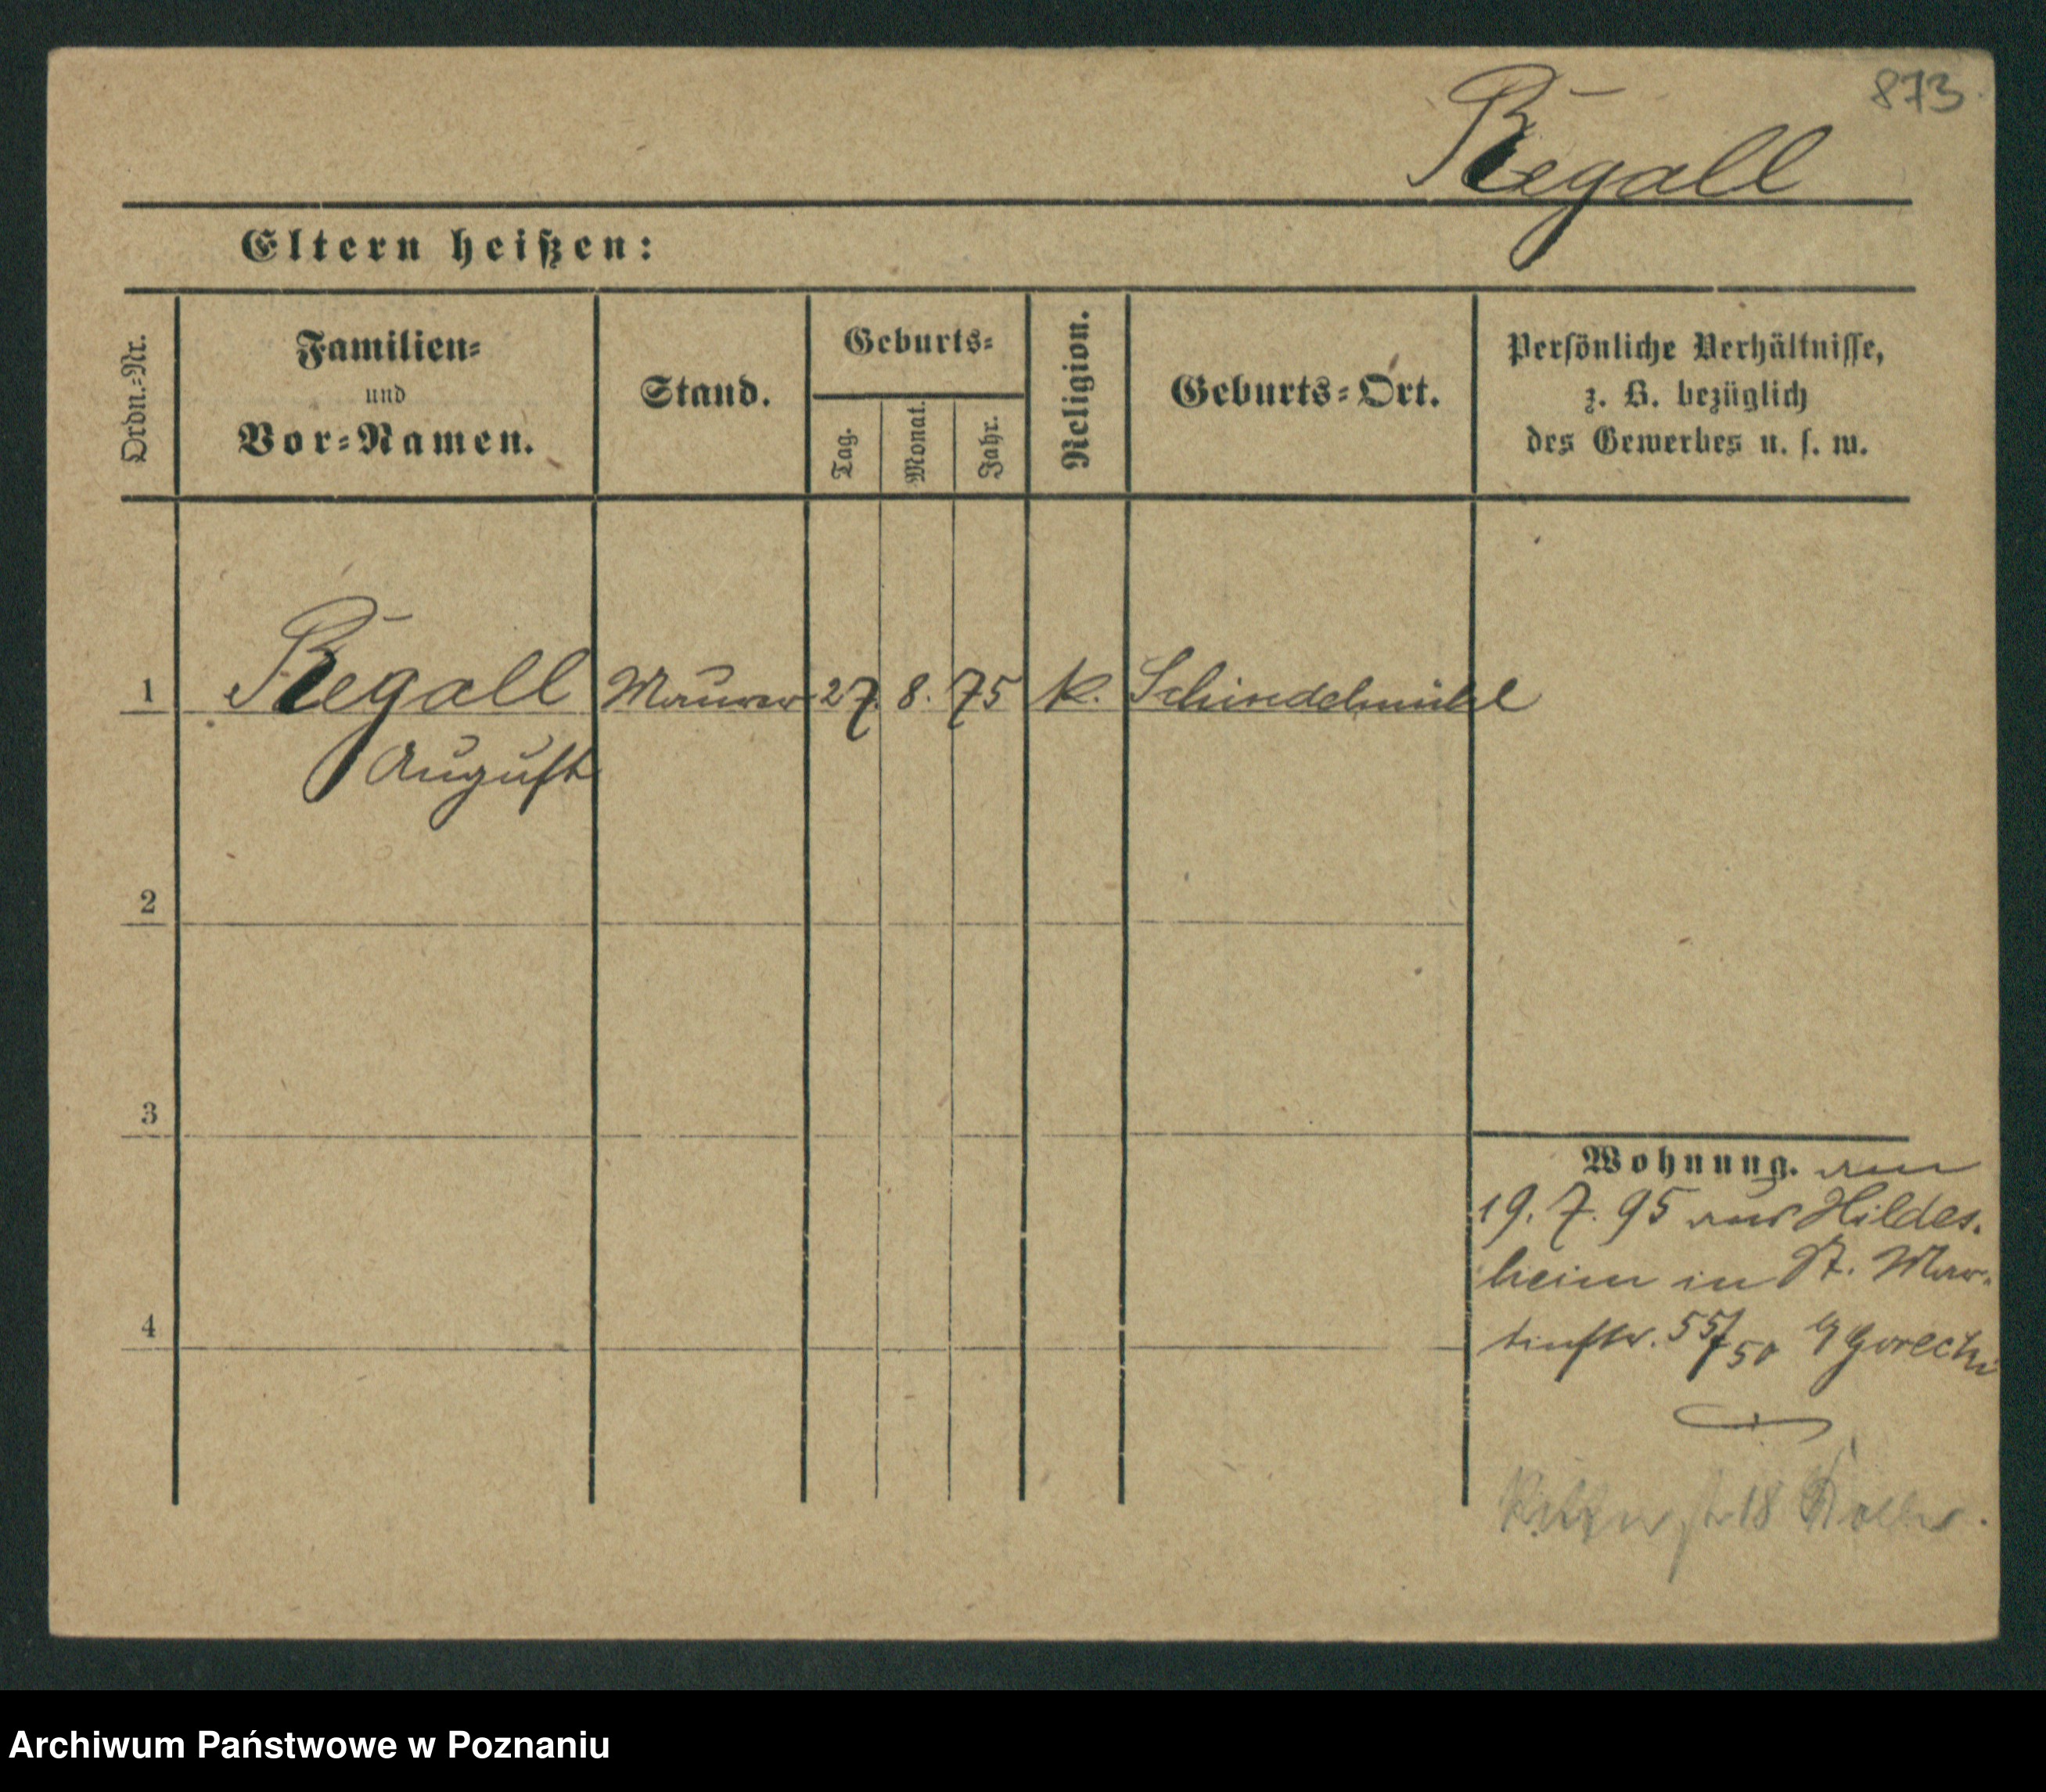 873.
Regall
Eltern heißen:
Ordn.-Nr.
Familien-
und
Vor-Namen.
Stand.
Geburts-
Tag.
Monat.
Jahr.
Religion.
Geburts-Ort.
Persönliche Verhältnisse,
z. B. bezüglich
des Gewerbes u. s. w.
1 Regall Maurer 27. 8. 75 k. Schindelmühl
August
2
3
4
Wohnung. am
19. 7. 95 aus Hildes-
heim in St. Mar-
tinstr. 55/50 Gorecki
18
Archiwum Państwowe w Poznaniu